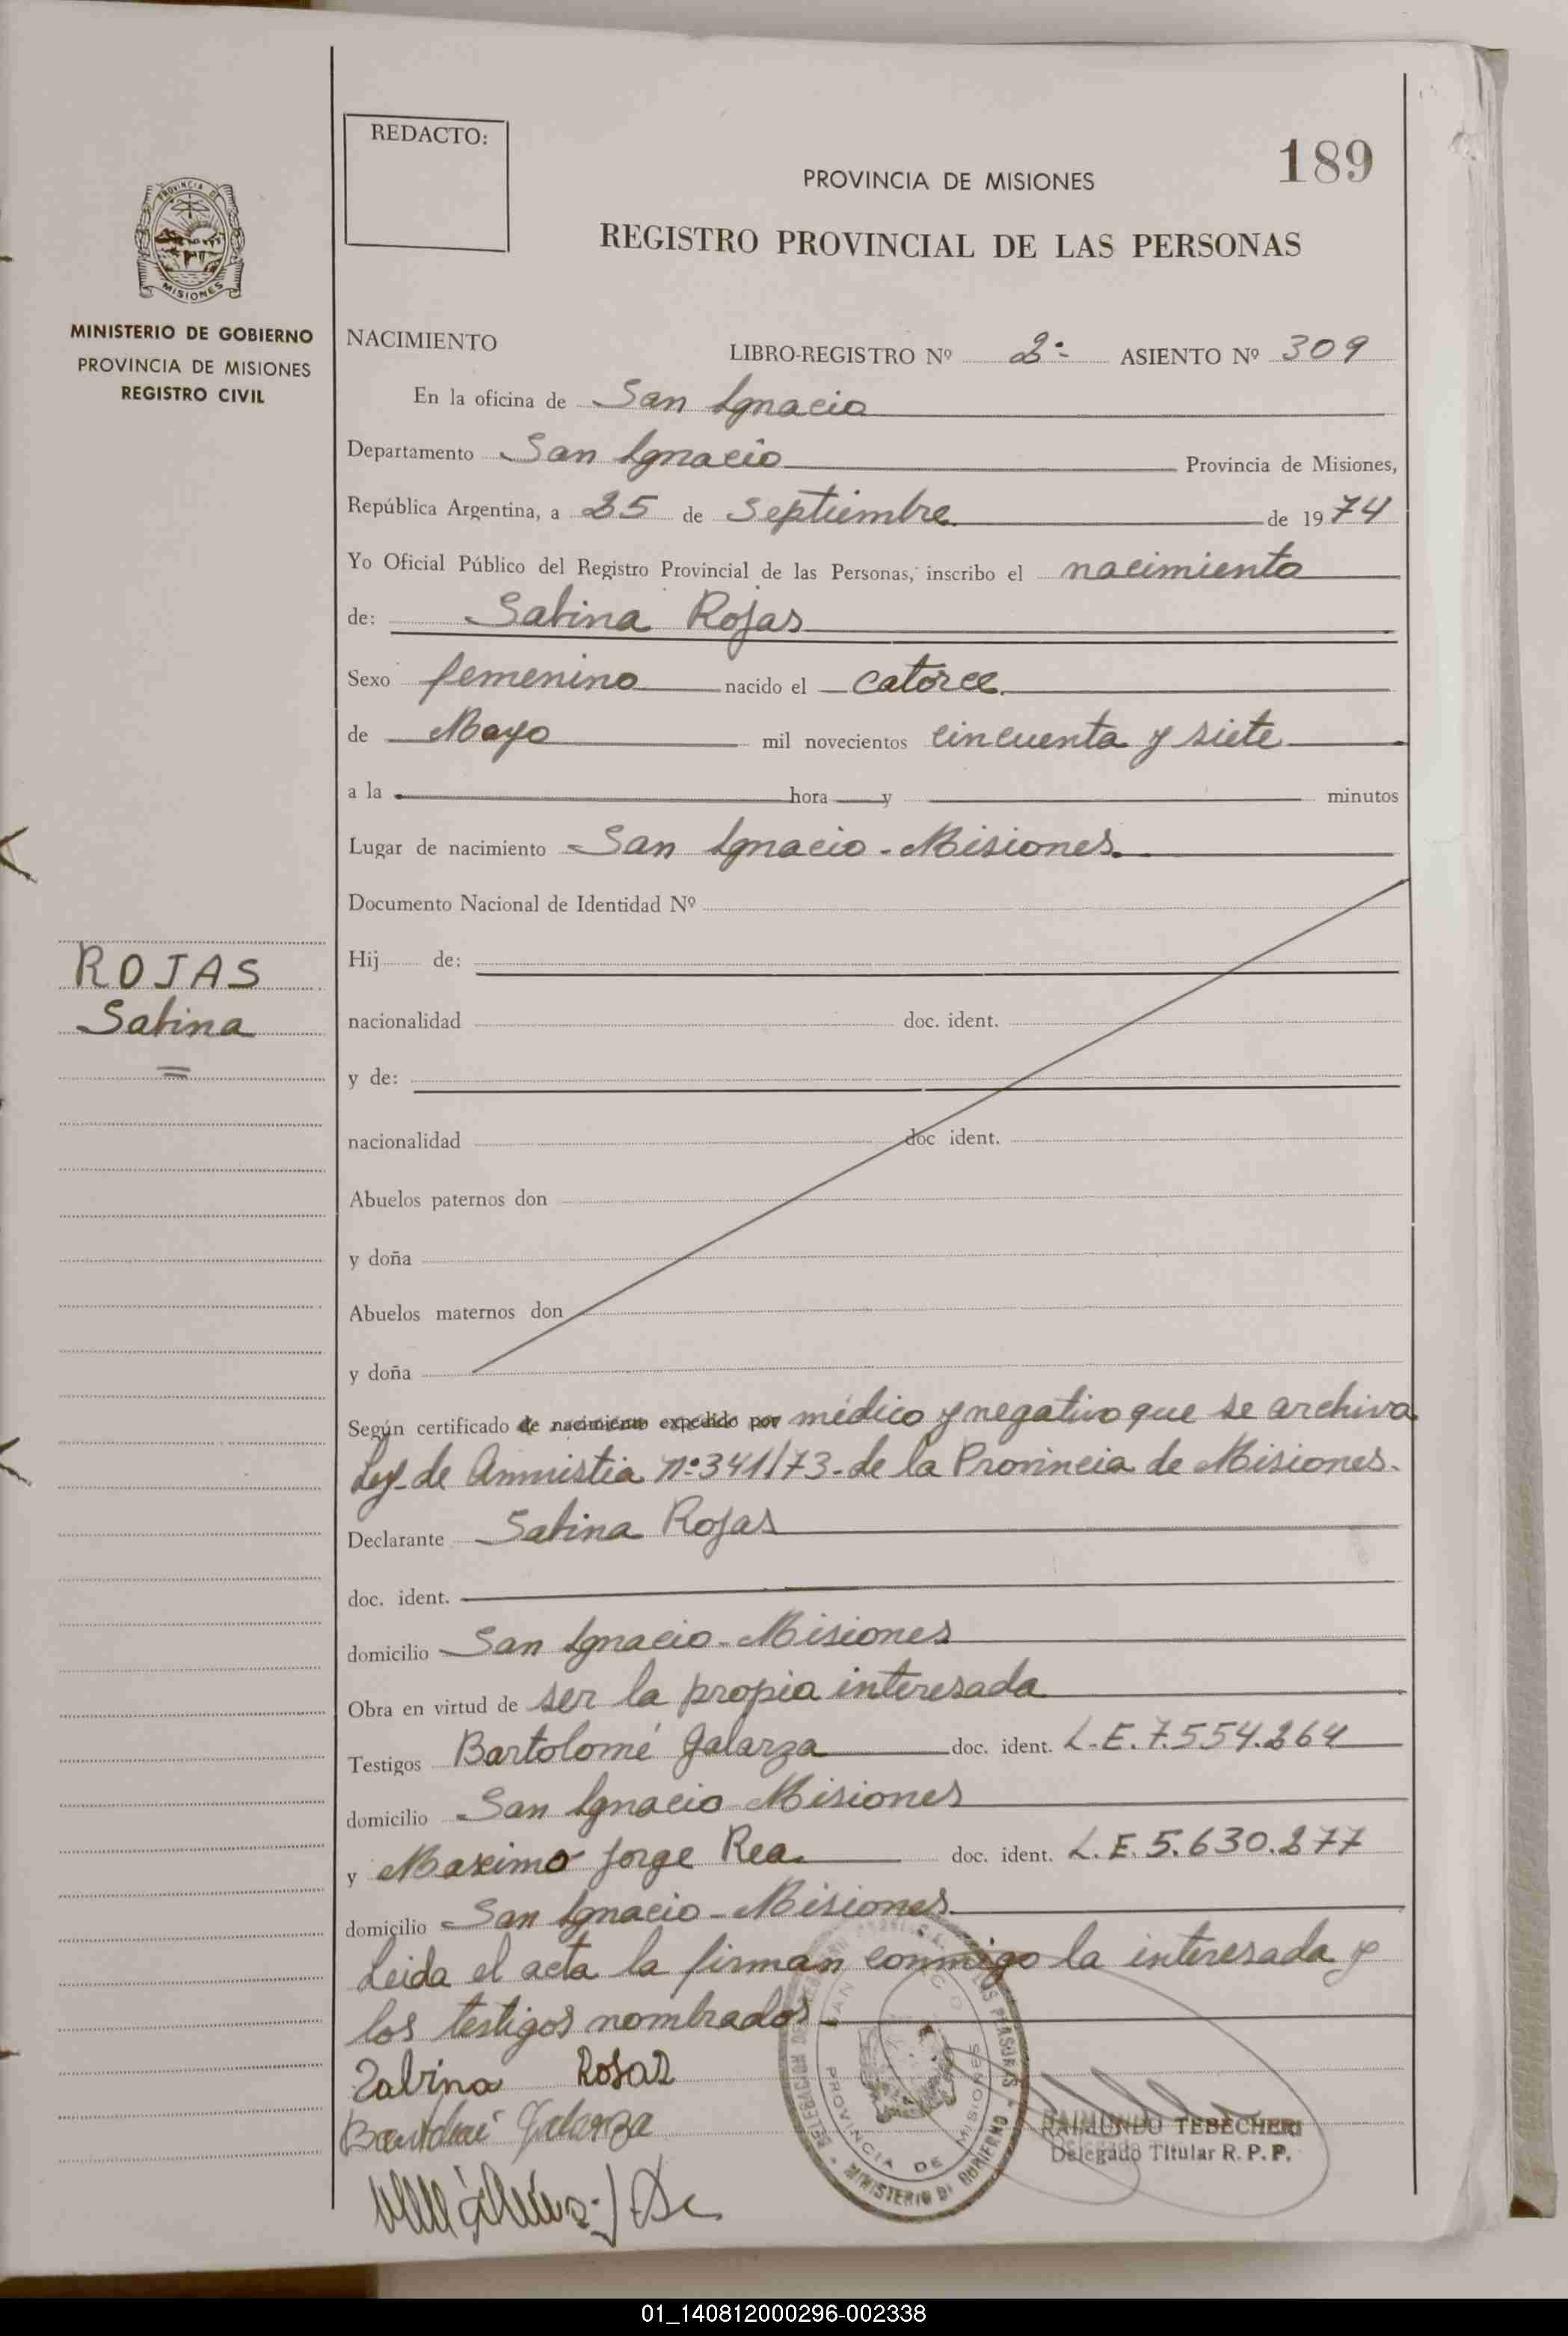 REDACTO:
189
PROVINCIA DE MISIONES
REGISTRO PROVINCIAL DE LAS PERSONAS
PROVINCIA DE
MISIONES
MINISTERIO DE GOBIERNO
PROVINCIA DE MISIONES
REGISTRO CIVIL
NACIMIENTO LIBRO-REGISTRO Nº 2º ASIENTO Nº 309
En la oficina de San Ignacio
Departamento San Ignacio Provincia de Misiones,
República Argentina, a 25 de Septiembre de 1974
Yo Oficial Público del Registro Provincial de las Personas, inscribo el nacimiento
de: Sabina Rojas
Sexo femenino nacido el catorce
de Mayo mil novecientos cincuenta y siete
a la hora y minutos
Lugar de nacimiento San Ignacio - Misiones.
Documento Nacional de Identidad Nº
ROJAS
Sabina
Hij de:
nacionalidad doc. ident.
y de:
nacionalidad doc ident.
Abuelos paternos don
y doña
Abuelos maternos don
y doña
Según certificado de nacimiento expedido por médico y negativo que se archiva
Ley de Amnistia nº 341/73 - de la Provincia de Misiones.
Declarante Sabina Rojas
doc. ident.
domicilio San Ignacio - Misiones
Obra en virtud de ser la propia interesada
Testigos Bartolomé Galarza doc. ident. L.E. 7.554.264
domicilio San Ignacio Misiones
y Maximo Jorge Rea. doc. ident. L.E. 5.630.277
domicilio San Ignacio - Misiones
Leida el acta la firman conmigo la interesada y
los testigos nombrados
Zabina Rosaz
Galarza
PROVINCIA DE MISIONES
MINISTERIO DE GOBIERNO
RAIMUNDO TEBECHERI
Delegado Titular R. P. P.
01_140812000296-002338